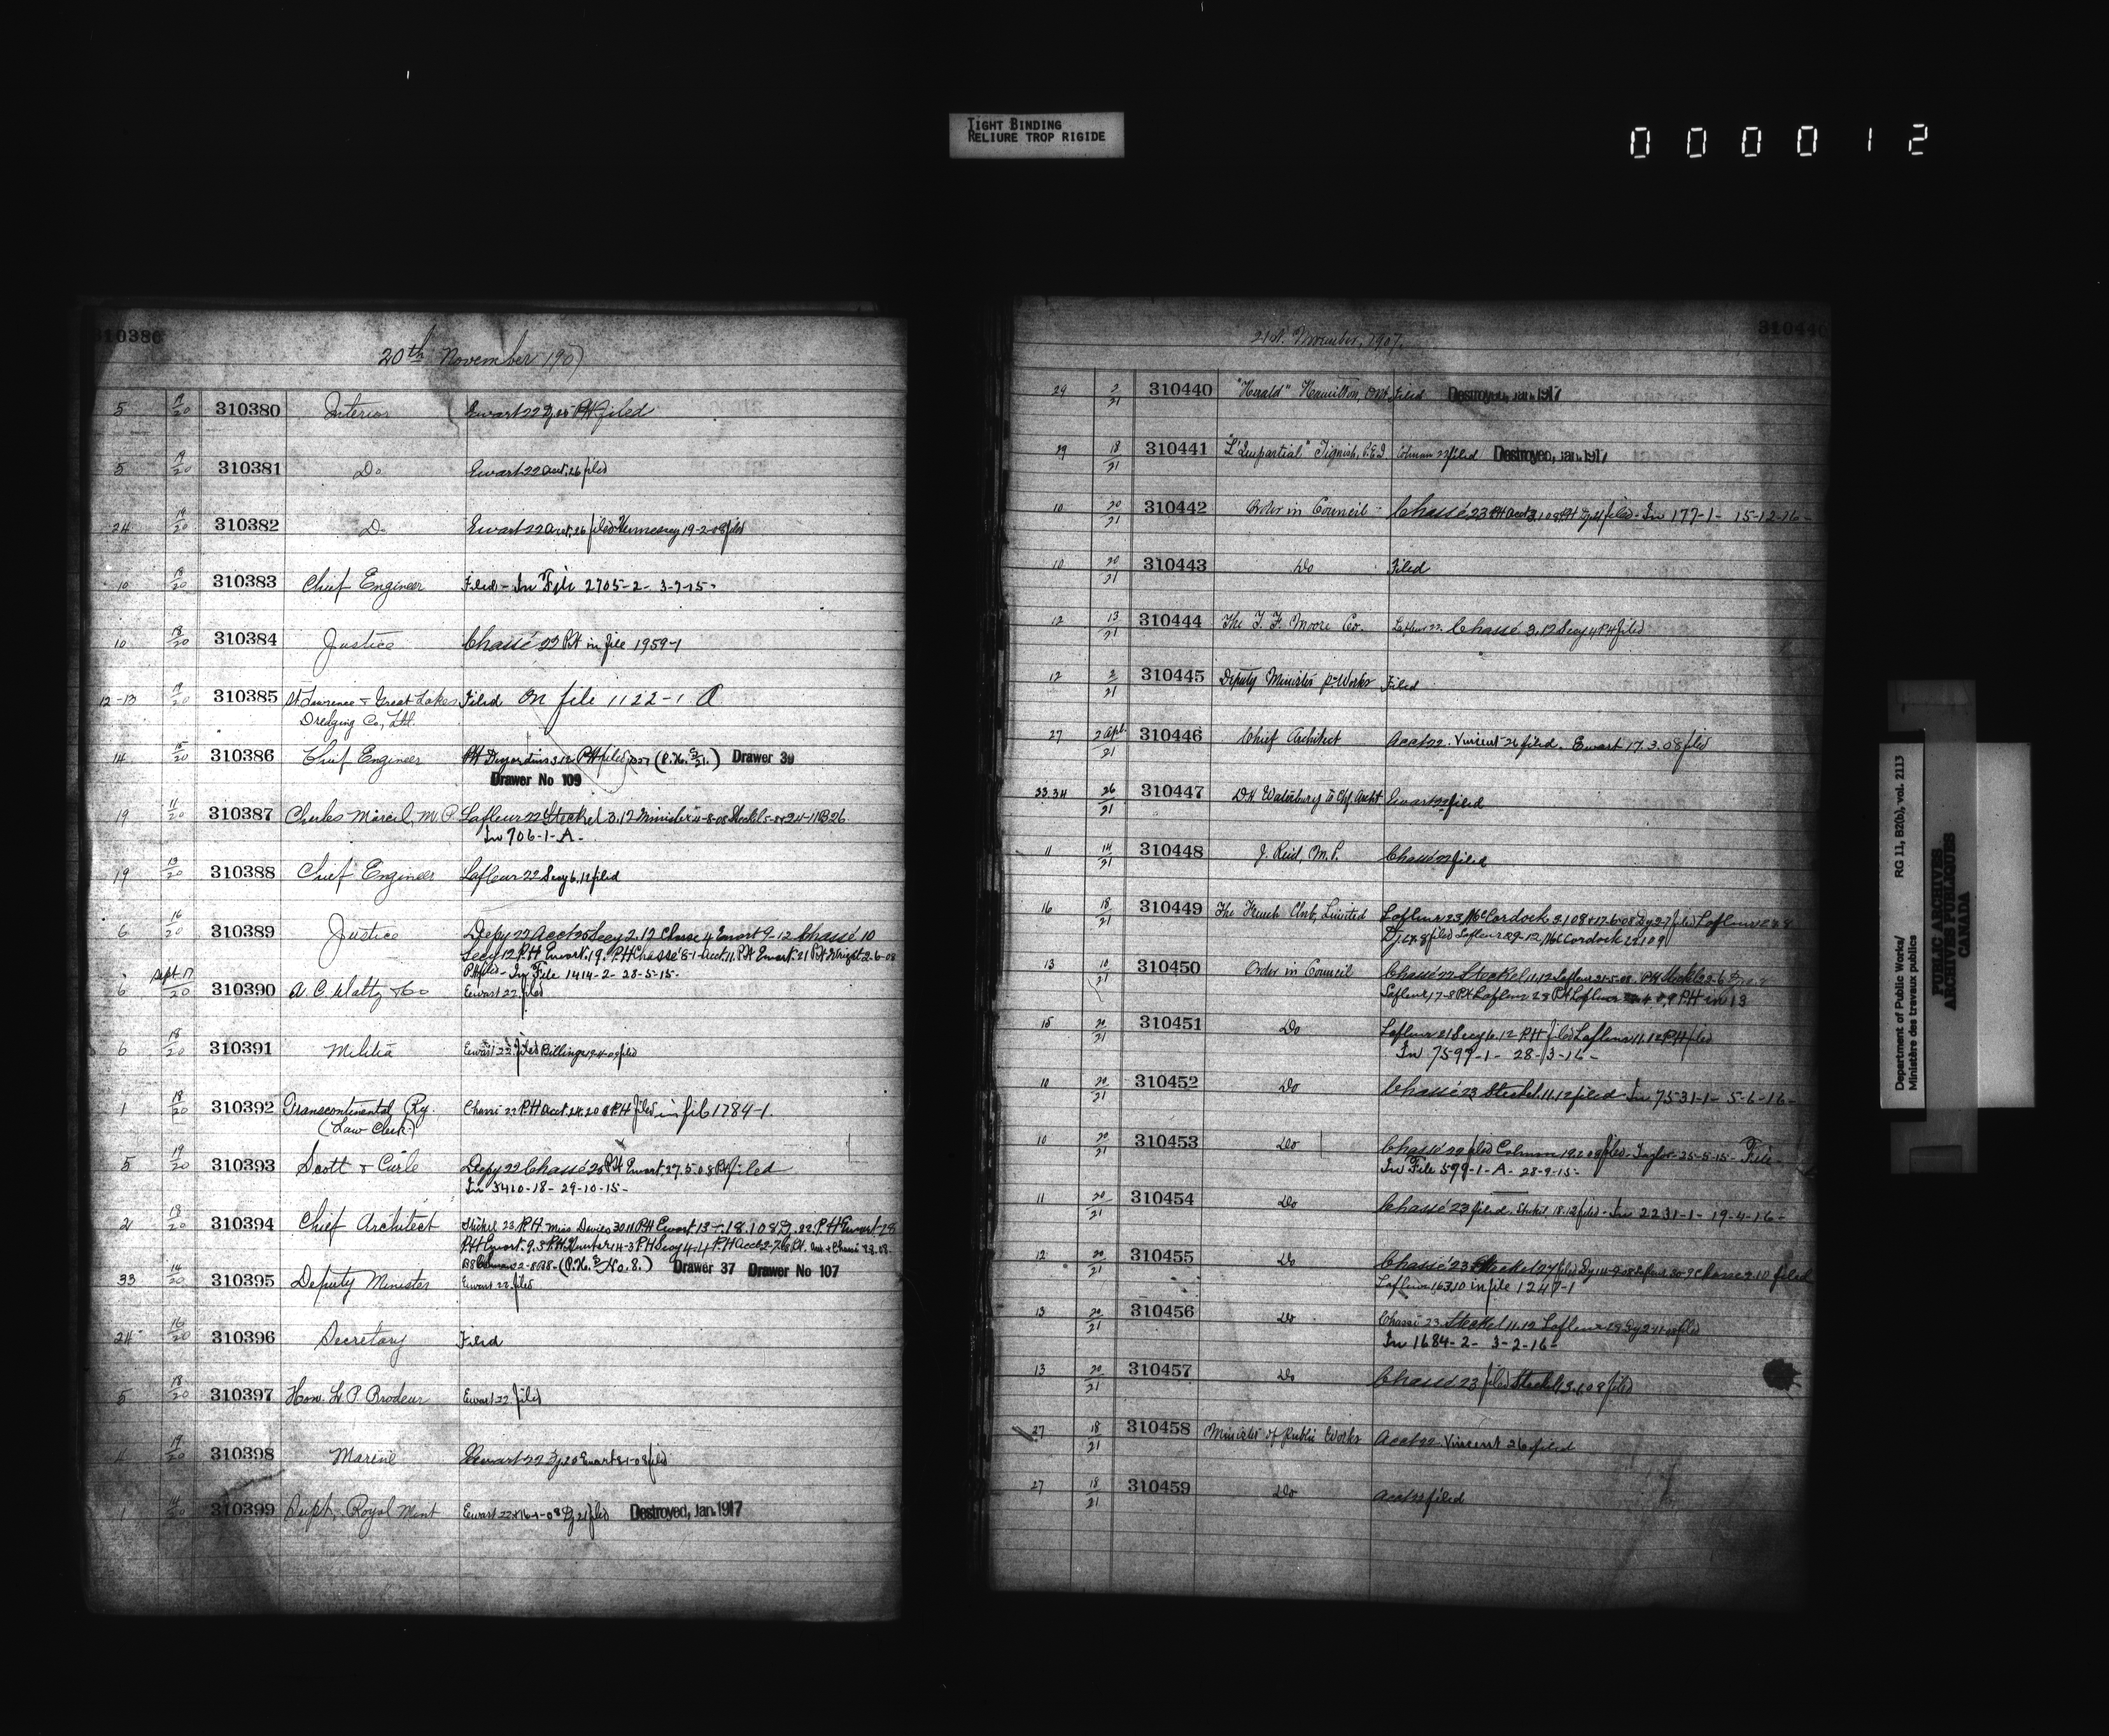 TIGHT BINDING
RELIURE TROP RIGIDE
000012
310380
20th November 1907
5 19/20 310380 Interior Ewart 22 PH filed
5 19/20 310381 Do Ewart 22 Acct. 26 filed
24 19/20 310382 Do Ewart 22 Acct. 26 filed Hennessy 19-2-08 filed
10 18/20 310383 Chief Engineer Filed - In File 2705-2- 3-7-15-
10 18/20 310384 Justice Chassé 22 PH in file 1959-1
12-13 19/20 310385 St. Lawrence & Great Lakes Filed On file 1122-1 A
Dredging Co, Ltd.
14 15/20 310386 Chief Engineer PH Desjardins 3.12 PH filed Drawer 39
Drawer No 109
19 11/20 310387 Charles Marcil, M.P. Lafleur 22 Steckel 3.12 Minister
In 706-1-A-
19 13/20 310388 Chief Engineer Lafleur 22 Secy 6.12 filed
6 16/20 310389 Justice Depy 22 Acct 25 Secy 2.12 Chasse 4 Ewart 9-12 Chassé 10
Secy 12 P.H Ewart. 19. PH Chassé 8-1 Acct. 11. P.H Ewart. 21 P.H Wright 2-6-08
PH filed - In File 1414-2- 28-5-15-
6 Sept 17/20 310390 A. C. Waltz & Co Ewart 22. filed
6 18/20 310391 Militia Ewart 22 filed Billings filed
1 18/20 310392 Transcontinental Ry. Chassé 22 P.H Acct. PH filed in file 1784-1.
(Law Clerk)
5 19/20 310393 Scott & Curle Depy 22 Chassé 25 PH Ewart. 27.5.08 PH filed
In 5410-18- 29-10-15-
2 18/20 310394 Chief Architect Steckel 23 P.H Miss Davies 30 11 P.H Ewart
P.H Ewart. 9.3 P.H Hunter 14-3 P.H Secy 4-4 P.H Acct
Drawer 37 Drawer No 107
33 14/20 310395 Deputy Minister Ewart 22. filed
24 16/20 310396 Secretary Filed
5 18/20 310397 Hon. L. P. Brodeur Ewart 22. filed
4 19/20 310398 Marine Ewart 22 filed
1 14/20 310399 Supt. Royal Mint Ewart 22 filed Destroyed, Jan. 1917
310440
21st. November, 1907.
29 2/21 310440 "Herald" Hamilton, Ont Filed Destroyed, Jan. 1917
29 18/21 310441 "L'Impartial" Tignish, P.E.I. Colman 22 filed Destroyed, Jan. 1917
10 20/21 310442 Order in Council - Chassé 23 PH filed - In 177-1- 15-12-16-
10 20/21 310443 Do Filed
12 13/21 310444 The F. F. Moore Co. Lafleur 22. Chassé 3.12 Secy 4 PH filed
12 2/21 310445 Deputy Minister P. Works Filed
27 2 Apl./21 310446 Chief Architect Acct 22. Vincent 26 filed. Ewart 17.3.08 filed
33.34 26/21 310447 D.H. Waterbury to Chf. Archt Ewart 22 filed
11 14/21 310448 J. Reid, M.P. Chassé 22 filed
16 18/21 310449 The French Club, Limited Lafleur 23 McCordock
13 10/21 310450 Order in Council Chassé 22 Steckel 11.12 Lafleur
15 20/21 310451 Do Lafleur 21 Secy 6.12 P.H filed Lafleur 11.12 P.H filed
In 7599-1- 28-3-16-
10 20/21 310452 Do Chassé 23 Steckel. 11.12 filed In 7531-1- 5-6-16-
10 20/21 310453 Do Chassé 22 filed Colman 19.2.08 filed - Taylor - 25-5-15- File -
In File 599-1-A- 28-9-15-
11 20/21 310454 Do Chassé 23 filed. Steckel 18.12 filed - In 2231-1- 19-4-16-
12 20/21 310455 Do Chassé 23 Steckel 27 filed
Lafleur in file 1247-1
13 20/21 310456 Do Chassé 23 Steckel 11.12 Lafleur filed
In 1684-2- 3-2-16-
13 20/21 310457 Do Chassé 23 filed Steckel filed
27 18/21 310458 Minister of Public Works Acct 22. Vincent 26 filed
27 18/21 310459 Do Acct 22 filed
Department of Public Works/
Ministère des travaux publics
RG 11, B2(b), vol. 2113
PUBLIC ARCHIVES
ARCHIVES PUBLIQUES
CANADA